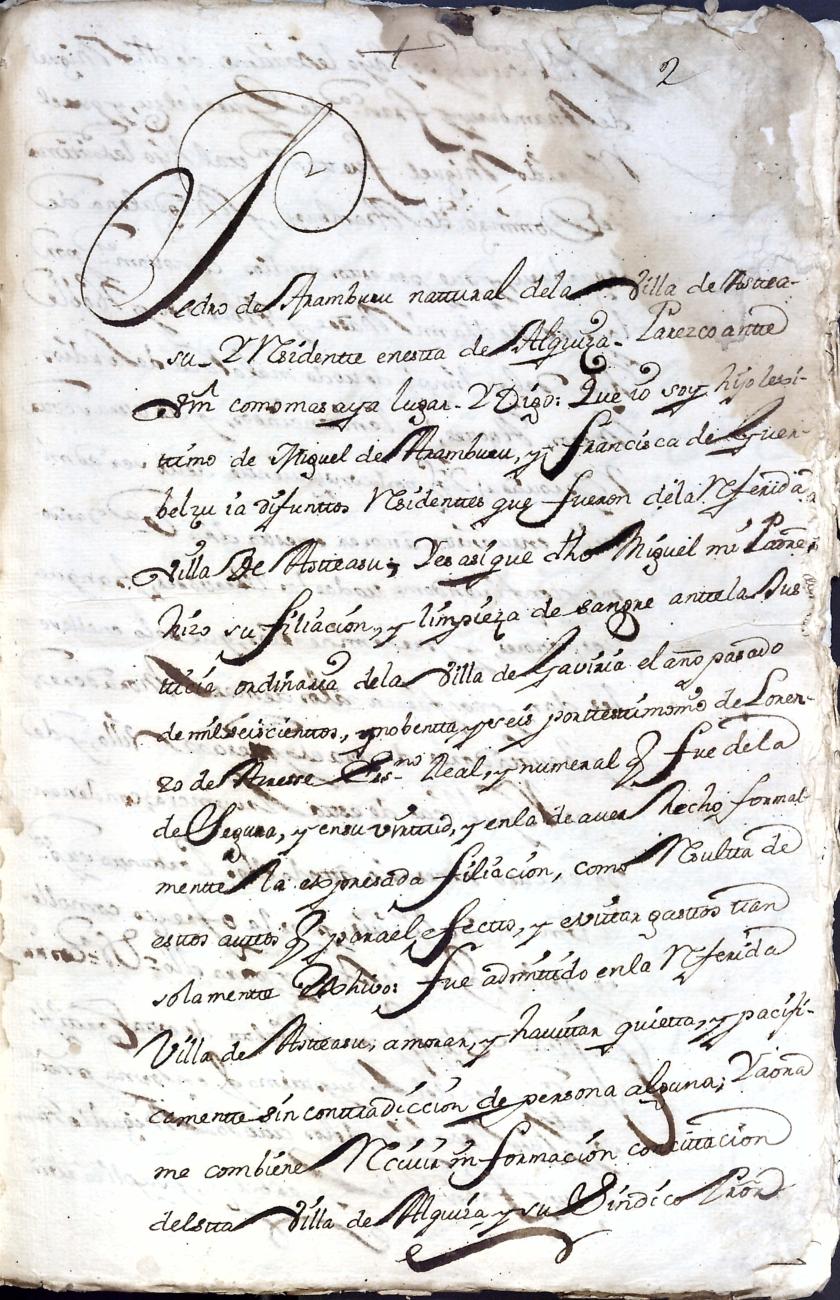 +
2
Pedro de Aramburu nattural dela Villa de Astea-
su, Y Residentte enestta de Alquiza. Parezco antte
Vm como mas aya lugar. Y Digo: Que io soy hijo lexi-
timo de Miguel de Aramburu, y francisca de Guer-
belzu ia difunttos Residenttes que fueron dela Referida
Villa De Astteasu; Y es asi que dho Miguel mi Padre
hizo su filiacion, y limpieza de sangre antte la Jus-
ticia ordinaria dela Villa de Gaviria el año pasado
de mil seiscienttos, y nobentta, y seis por testtimonio de Loren-
zo de Aresse Essno Real, y numeral q fue de la
de Segura, y en su virttud, y en la de aver hecho formal-
mentte la expresada filiacion, como Resultta de
esttos auttos q para el efectto, y evittar gasttos ttan
solamentte Exhivo: fue admittido en la Referida
Villa de Astteasu, a morar, y havittar quietta, y pacifi-
camentte sin conttradiccion de persona alguna; Y aora
me combiene Recivir informacion con cittacion
destta Villa de Alquiza, y su Sindico Pror